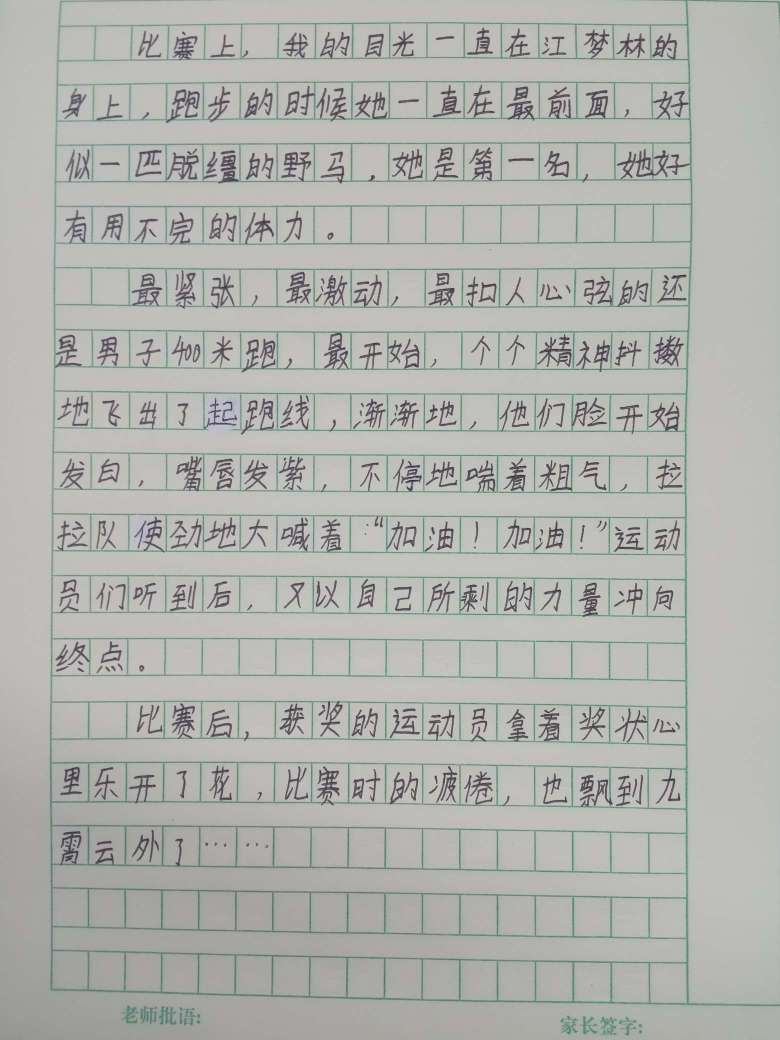 比赛上，我的目光一直在江梦林的
身上，跑步的时候她一直在最前面，好
似一匹脱缰的野马，她是第一名，她好
有用不完的体力。
最紧张，最激动，最扣人心弦的还
是男子400米跑，最开始，个个精神抖擞
地飞出了起跑线，渐渐地，他们脸开始
发白，嘴唇发紫，不停地喘着粗气，拉
拉队使劲地大喊着：“加油！加油！”运动
员们听到后，又以自己所剩的力量冲向
终点。
比赛后，获奖的运动员拿着奖状心
里乐开了花，比赛时的疲倦，也飘到九
霄云外了……
老师批语:
家长签字: